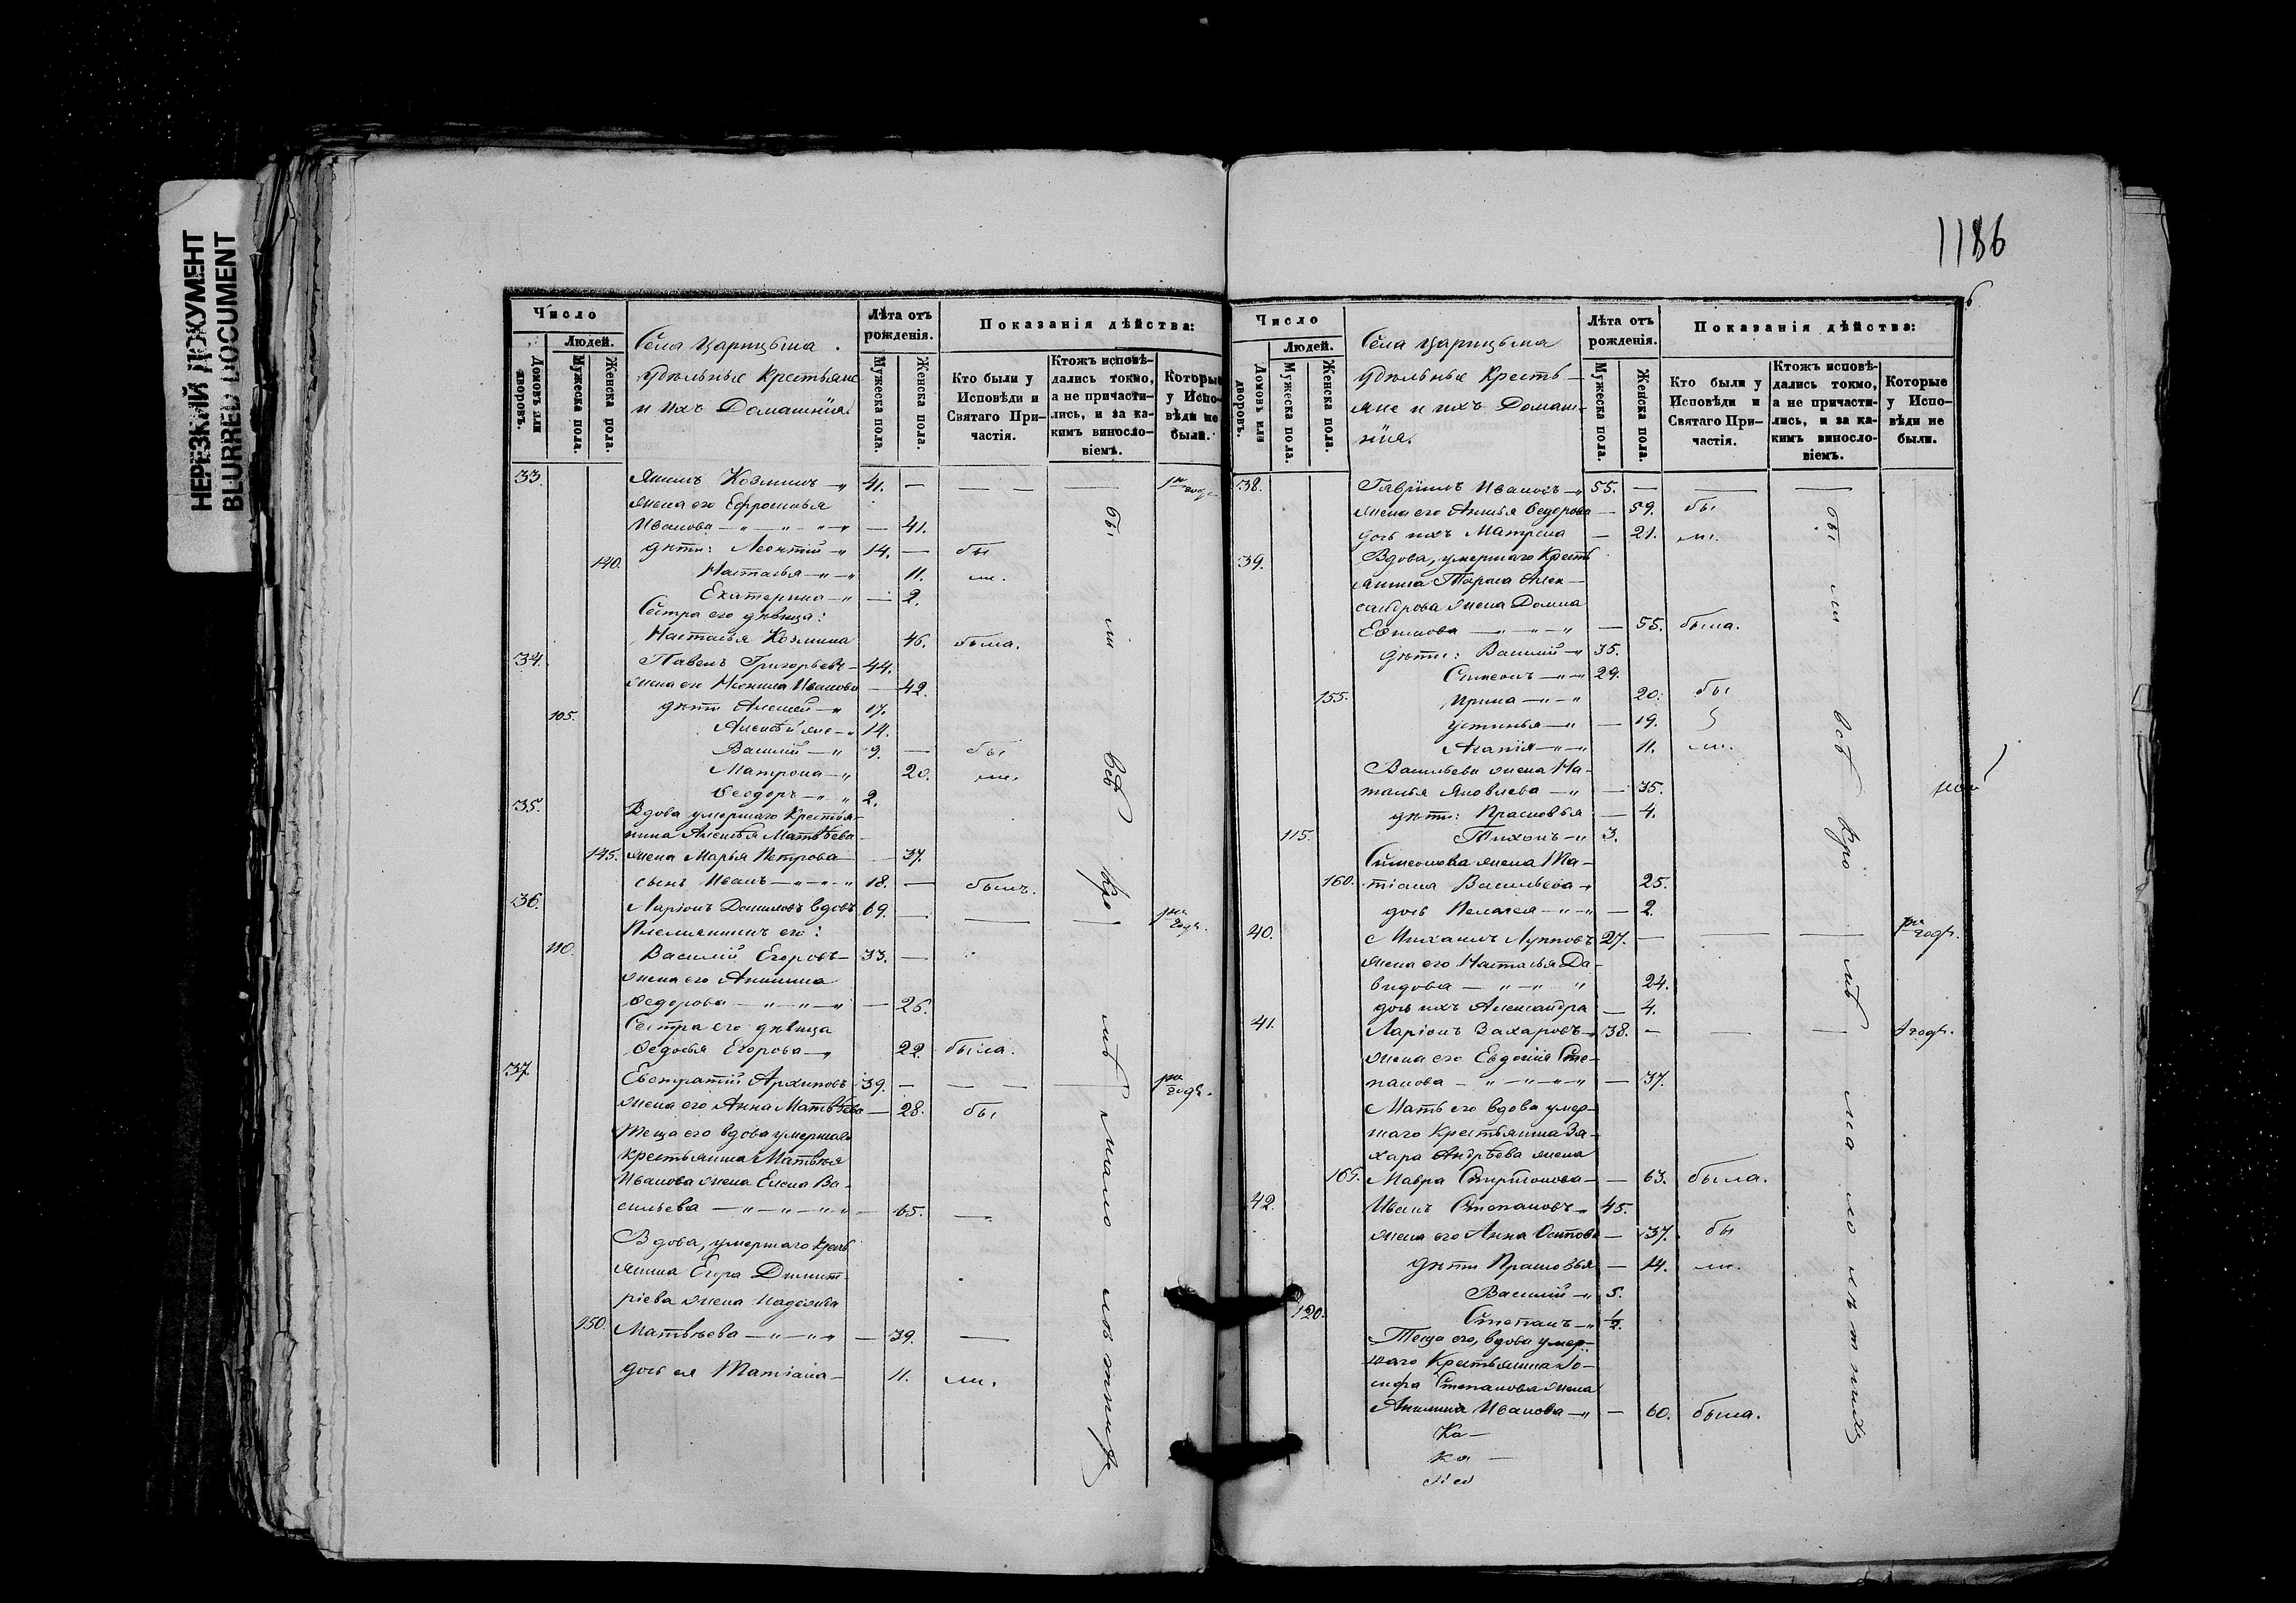 НЕРЕЗКИЙ ДОКУМЕНТ
BLURRED DOCUMENT
1186
Число
Людей.
Домовъ или дворовъ.
Мужеска пола.
Женска пола.
Села Царицына.
Удѣльные Крестьяне
и ихъ Домашнія.
Лѣта отъ рожденія.
Мужеска пола.
Женска пола.
Показанія дѣйства:
Кто были у Исповѣди и Святаго При-частія.
Ктожъ исповѣ-дались токмо, а не причасти-лись, и за ка-кимъ винosло-віемъ.
Которые у Испо-вѣди не были.
33. Якимъ Козминъ 41.
жена его Ефросинья
Иванова 41.
дѣти: Леонтій 14. бы
140. Настасья 11. ли.
Екатерина 2.
Сестра его дѣвица:
Настасья Козмина 46. была.
34. Павелъ Григорьевъ 44.
жена его Неонила Иванова 42.
105. дѣти Алексѣй 17.
Алексѣй же 14.
Василій 9. бы
Матрона 20. ли.
Ѳеодоръ 2.
35. Вдова умершаго Крестья-
нина Алексѣя Матвѣева
145. жена Марья Петрова 37.
сынъ Иванъ 18. былъ.
36. Ларіонъ Даниловъ вдовъ 69.
Племянникъ его:
110. Василій Егоровъ 33.
жена его Акилина
Ѳедорова 26.
Сестра его дѣвица
Ѳедосья Егорова 22. была.
37. Евстратій Архиповъ 39.
жена его Анна Матвѣева 28. бы
Теща его вдова умершаго
крестьянина Матвѣя
Иванова жена Елена Ва-
сильева 65.
Вдова, умершаго крест
янина Егора Димит-
ріева жена Надежда
150. Матвѣева 39.
дочь ея Татіана 11. ли.
бы ли всѣ кро мѣ мало лѣтнихъ
Число
Людей.
Домовъ или дворовъ.
Мужеска пола.
Женска пола.
Села Царицына
Удѣльные Кресть-
яне и ихъ Домаш-
нія.
Лѣта отъ рожденія.
Мужеска пола.
Женска пола.
Показанія дѣйства:
Кто были у Исповѣди и Святаго При-частія.
Ктожъ исповѣ-дались токмо, а не причасти-лись, и за ка-кимъ винosло-віемъ.
Которые у Испо-вѣди не были.
38. Гавріилъ Ивановъ 55.
жена его Анисья Ѳедорова 59. бы
дочь ихъ Матрена 21. ли.
39. Вдова, умершаго Крест
янина Тараса Алек-
сандрова жена Домна
Ефимова 55. была.
дѣти: Василій 35.
Симеонъ 29.
155. Ирина 20. бы
Устинья 19.
Агапія 11. ли.
Васильева жена На-
талья Яковлева 35.
дѣти: Прасковья 4.
115. Тихонъ 3.
Симеонова жена Та-
160. тіана Васильева 25.
дочь Пелагея 2.
40. Михаилъ Лупповъ 27.
жена его Настасья Да-
видова 24.
дочь ихъ Александра 4.
41. Ларіонъ Захаровъ 38.
жена его Евдокія Сте-
панова 37.
Мать его вдова умер-
шаго крестьянина За-
хара Андрѣева жена
165. Мавра Спиридонова 63. была.
42. Иванъ Степановъ 45.
жена его Анна Осипова 37. бы
дѣти Прасковья 14. ли.
Василій 5.
120. Степанъ ½.
Теща его, вдова умер-
шаго Крестьянина Іо-
сифа Степанова жена
Акилина Иванова 60. была.
бы ли всѣ кро мѣ ма ло лѣтнихъ